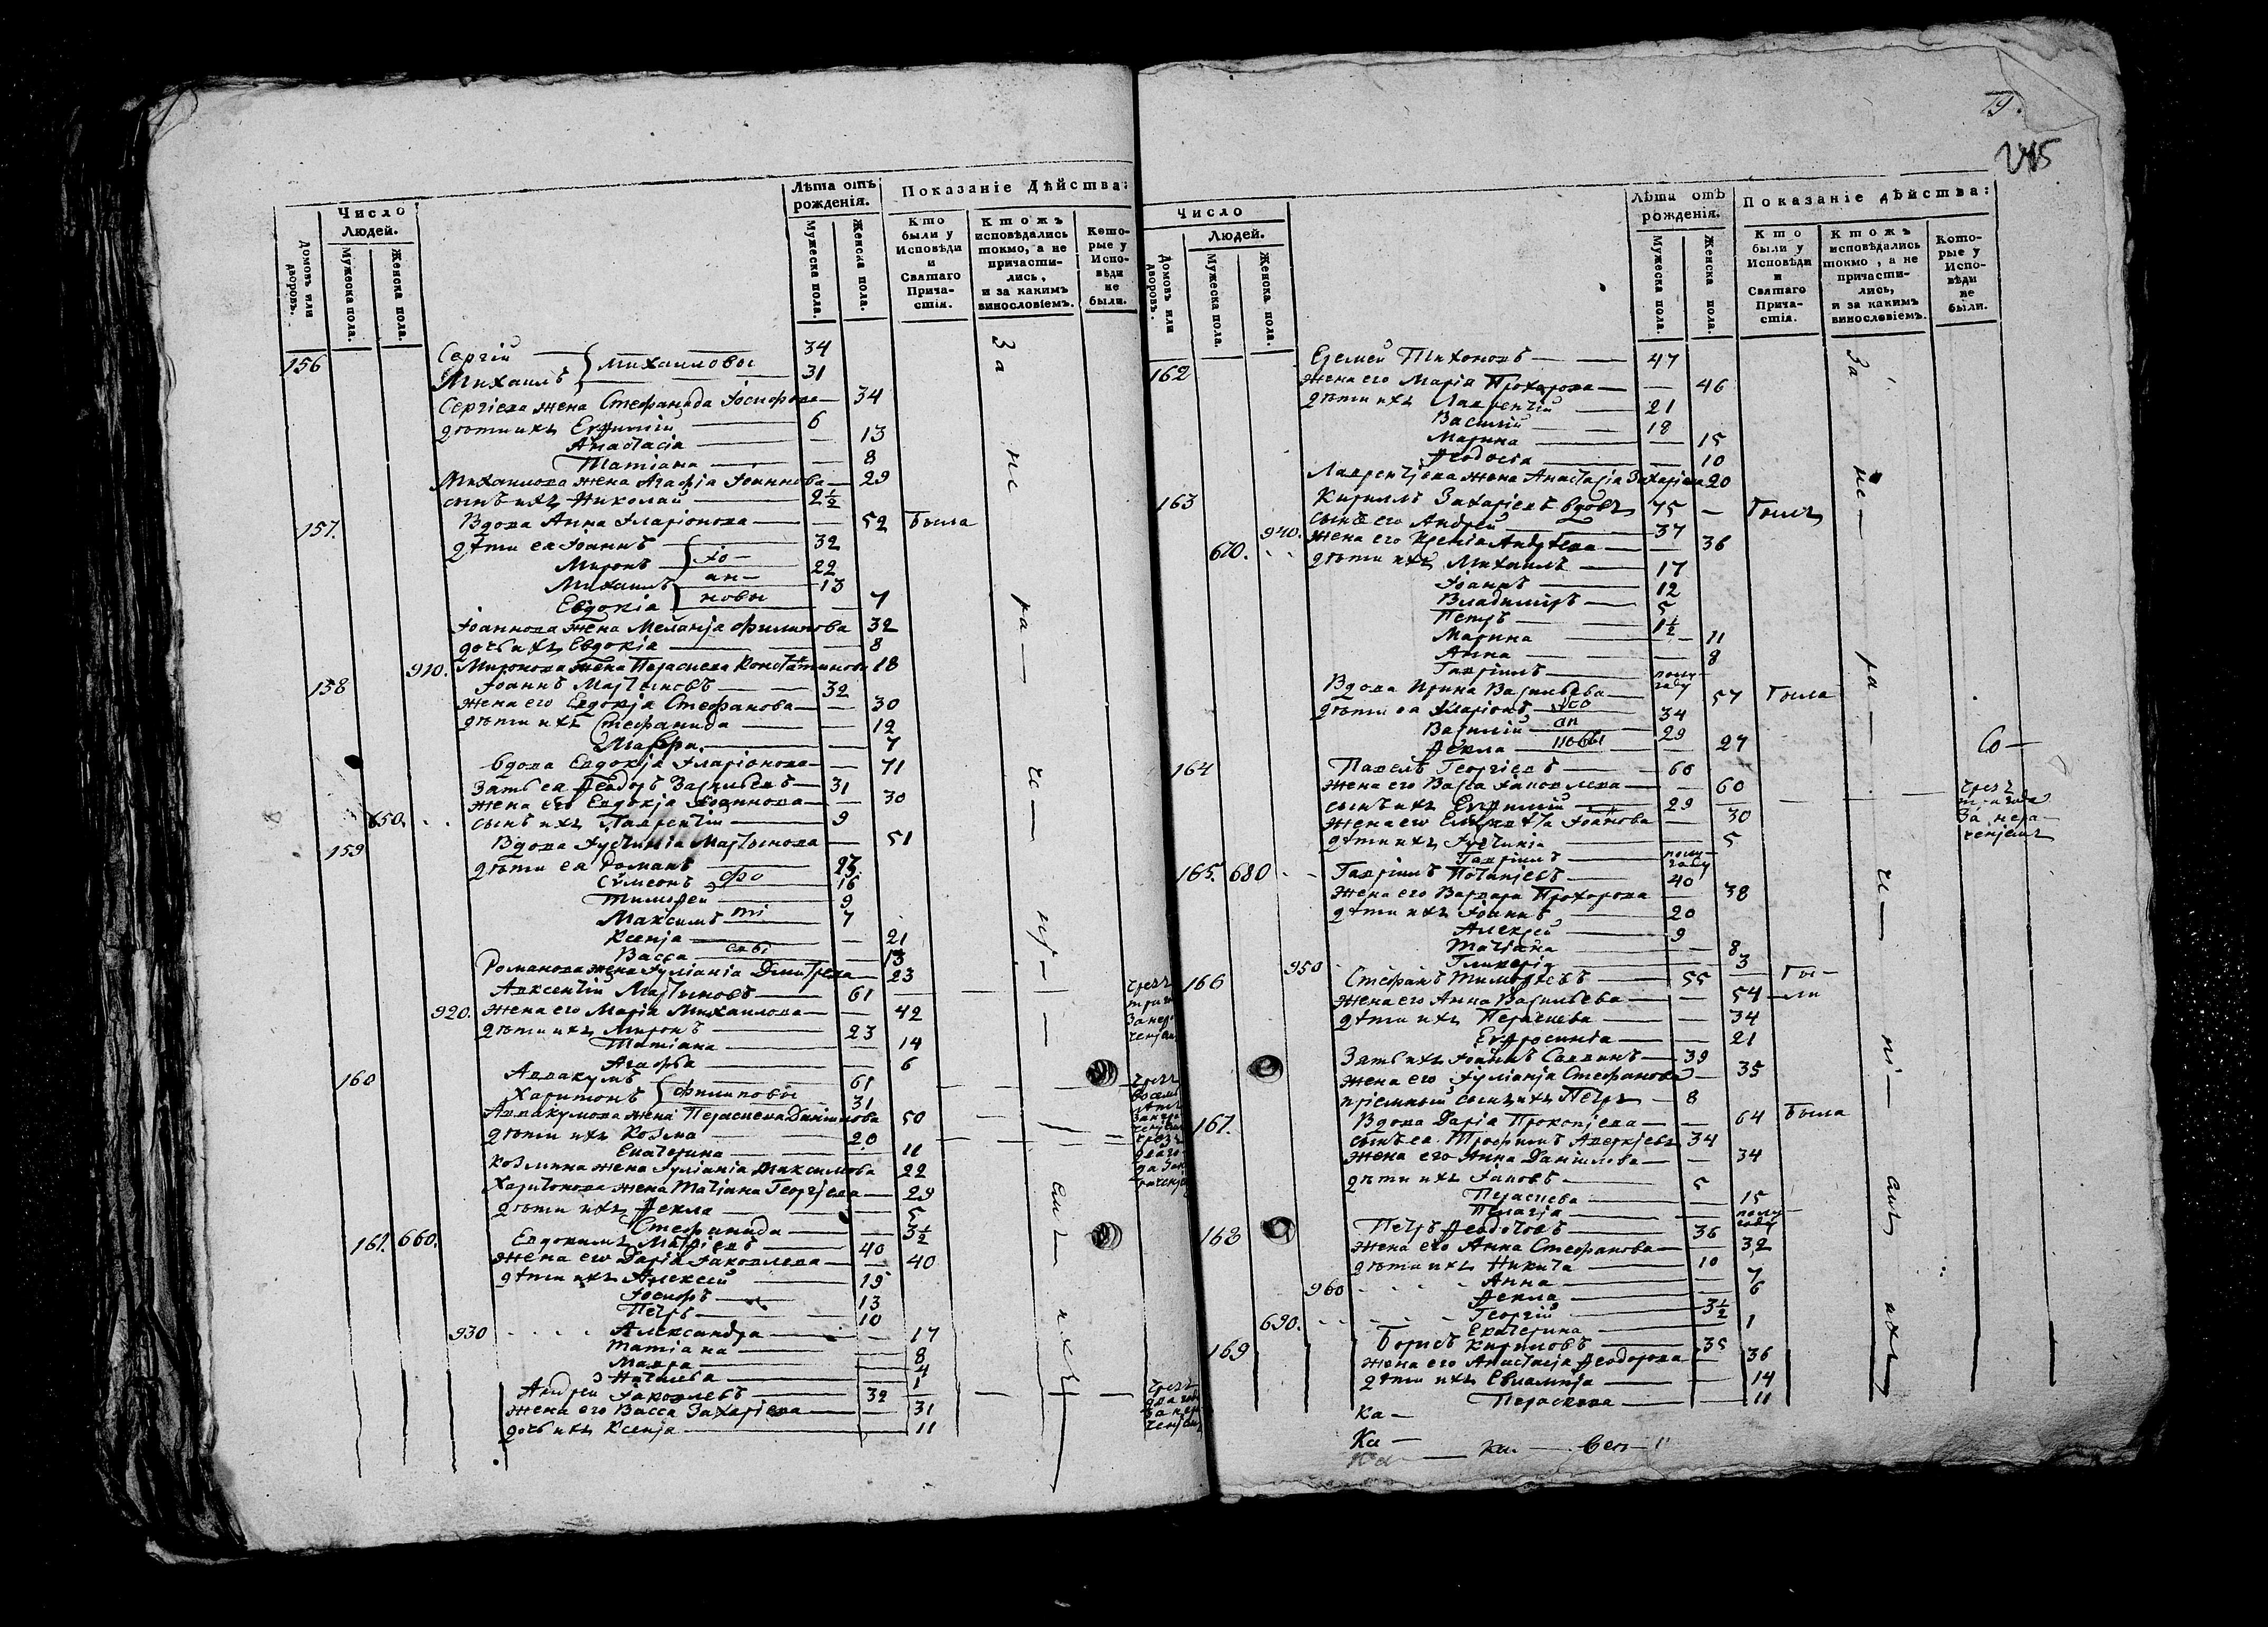 Число
Людей.
Домовъ или дворовъ.
Мужеска пола.
Женска пола.
Лѣта отъ рожденія.
Мужеска пола.
Женска пола.
Показаніе Дѣйства:
Кто были у Исповѣди и Святаго Прича-стія.
Ктожъ исповѣдались токмо, а не причасти-лись, и за какимъ винословіемъ.
Кото-рые у Испо-вѣди не были.
156 Сергій } Михаиловы 34
Михаилъ 31
Сергіева жена Стефанида Іосифова 34
дѣти ихъ Евфимій 6
Анастасіа 13
Татіана 8
Михаилова жена Агафіа Іоаннова 29
сынъ ихъ Николай 2½
157. Вдова Анна Иларіонова 52 Была
дѣти ея Іоаннъ } Іо- 32
Миронъ 22
Михаилъ ан- 13
Евдокіа новы 7
Іоаннова жена Меланіа Филипова 32
дочь ихъ Евдокіа 8
910. Миронова жена Параскева Константинова 18
158 Іоаннъ Мартыновъ 32
жена его Евдокіа Стефанова 30
дѣти ихъ Стефанида 12
Мавра 7
вдова Евдокіа Иларіонова 71
Зять ея Феодоръ Васильевъ 31
жена его Евдокіа Іоаннова 30
650. сынъ ихъ Лаврентій 9
159 Вдова Іустиніа Мартынова 51
дѣти ея Романъ 27
Сѵмеонъ фо 16
Тимофей 9
Максимъ ті 7
Ксеніа 21
Васса евы 13
Романова жена Іуліаніа Дмитріева 23
Авксентій Мартыновъ 61
920. жена его Маріа Михаилова 42
дѣти ихъ Миронъ 23
Татіана 14
Агафьа 6
160 Аввакумъ } Филиповы 61
Харитонъ 31
Аввакумова жена Параскева Даніилова 50
дѣти ихъ Козма 20
Екатерина 11
Козмина жена Іуліаніа Максимова 22
Харитонова жена Татіана Георгіева 29
дѣти ихъ Фекла 5
Стефанида 3½
161. 660. Евдокимъ Матфіевъ 40
жена его Даріа Іаковлева 40
дѣти ихъ Алексей 15
Іосифъ 13
Петръ 10
930 Александра 17
Татіана 8
Мавра 4
Наталіа 1
Андрей Іаковлевъ 32
жена его Васса Захаріева 31
дочь ихъ Ксеніа 11
За не ра- че- ні- емъ ихъ
79.
Число
Людей.
Домовъ или дворовъ.
Мужеска пола.
Женска пола.
Лѣта отъ рожденія.
Мужеска пола.
Женска пола.
Показаніе дѣйства:
Кто были у Исповѣди и Святаго Прича-стія.
Ктожъ исповѣдались токмо, а не причасти-лись, и за какимъ винословіемъ.
Кото-рые у Испо-вѣди не были.
162 Еремей Тихоновъ 47
жена его Маріа Прохорова 46
дѣти ихъ Лаврентій 21
Василій 18
Марина 15
Феодосіа 10
Лаврентіева жена Анастасіа Захаріева 20
163 Кириллъ Захаріевъ вдовъ 75 Былъ
сынъ его Андрей 37
940. жена его Ксеніа Андреева 36
670. дѣти ихъ Михаилъ 17
Іоаннъ 12
Владимиръ 5
Петръ 1½
Марина 11
Анна 8
Гавріилъ полу-году
Вдова Ирина Васильева 57 Была
дѣти ея Иларіонъ 34
Василій ан 29
Фекла новы 27
164 Павелъ Георгіевъ 60
жена его Васса Іаковлева 60
сынъ ихъ Евфимій 29
жена его Іоаннова 30
дѣти ихъ Іустиніа 5
Гавріилъ полу-году
Со- чрезъ три года за нера-ченіемъ
165. 680 Гавріилъ Потапіевъ 40
жена его Варвара Прохорова 38
дѣти ихъ Іоаннъ 20
Алексей 9
Татіана 8
950 Гликеріа 3
166 Стефанъ Тимофеевъ 55 Бы-
жена его Анна Васильева 54 ли
дѣти ихъ Параскева 34
Евфросиніа 21
Зять ихъ Іоаннъ Саввинъ 39
жена его Іуліаніа Стефанова 35
пріемный сынъ ихъ Петръ 8
167. Вдова Даріа Прокопіева 64 Была
сынъ ея Трофимъ Аверкіевъ 34
жена его Анна Даніилова 34
дѣти ихъ Іаковъ 5
Параскева 15
Пелагіа полу-году
168 Петръ Феодотовъ 36
жена его Анна Стефанова 32
дѣти ихъ Никита 10
Анна 7
960 Фекла 6
690. Георгій 3½
Екатерина 1
169 Борисъ Кириловъ 35
жена его Анастасіа Феодорова 36
дѣти ихъ Евлампіа 14
Параскева 11
За не- ра- че- ні- емъ ихъ
Ка-
Ка-